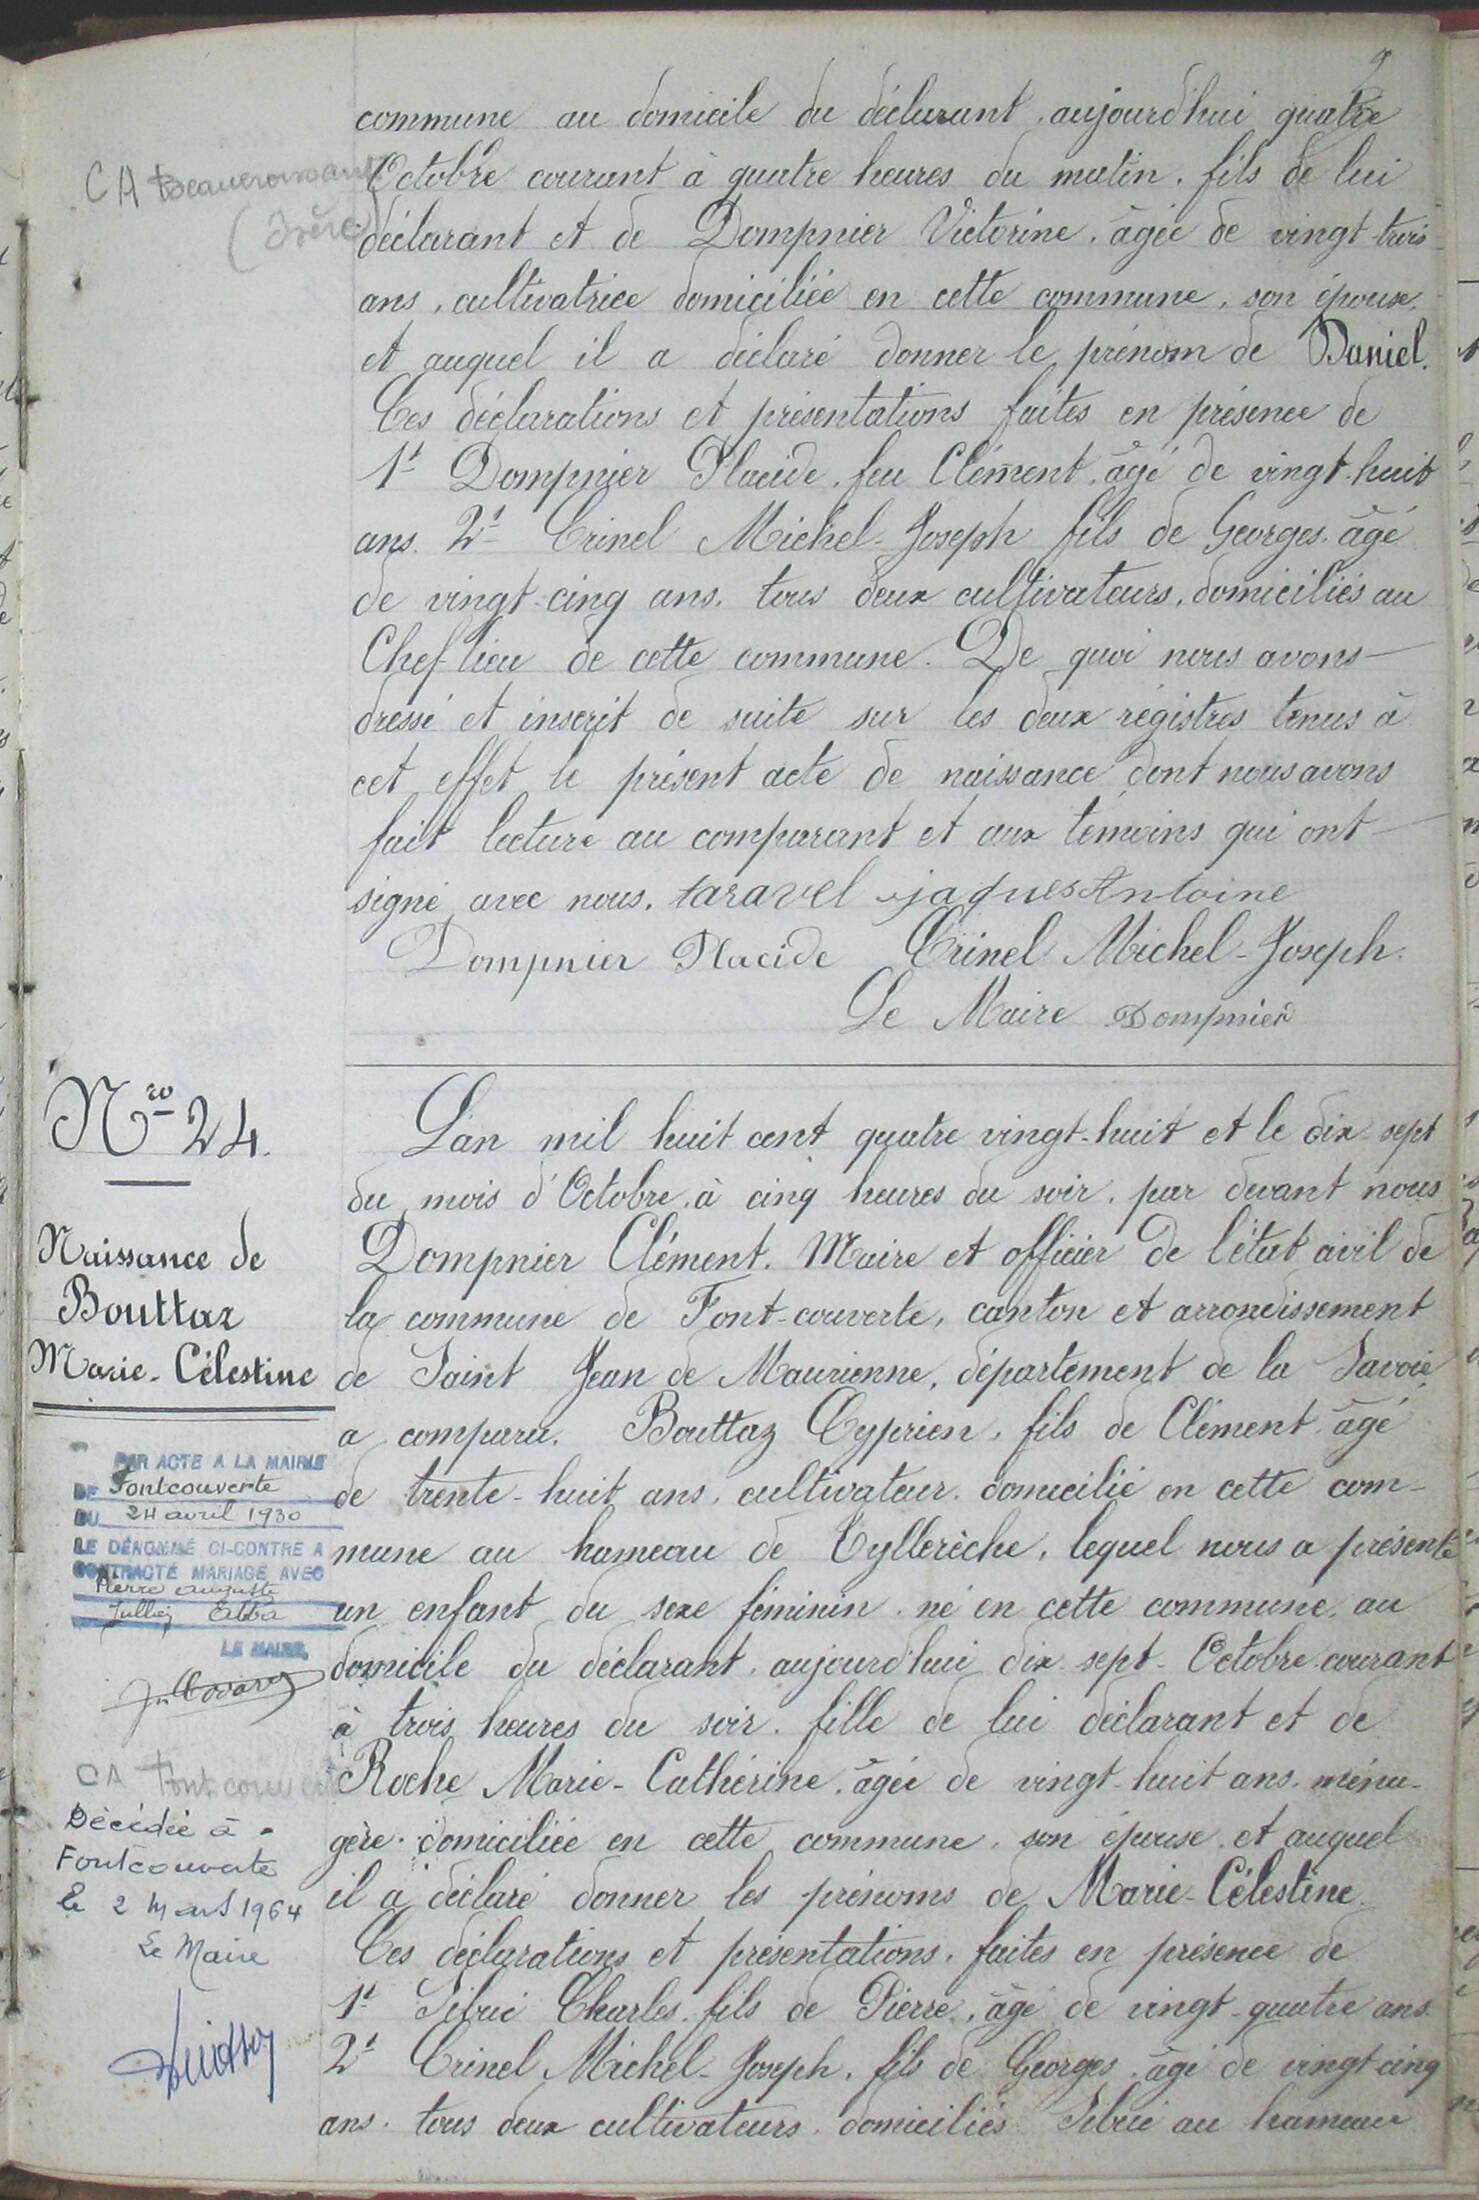 9
commune au domicile du déclarant, aujourd'hui quatre
Octobre courant à quatre heures du matin, fils de lui
déclarant et de Dompnier Victorine, âgée de vingt-trois
ans, cultivatrice domiciliée en cette commune, son épouse,
et auquel il a déclaré donner le prénom de Daniel.
Ces déclarations et présentations faites en présence de
1t Dompnier Placide, feu Clément, âgé de vingt-huit
ans. 2t Crinel Michel-Joseph fils de Georges, âgé
de vingt-cinq ans, tous deux cultivateurs, domiciliés au
Chef-lieu de cette commune. De quoi nous avons
dressé et inscrit de suite sur les deux régistres tenus à
cet effet le présent acte de naissance dont nous avons
fait lecture au comparant et aux témoins qui ont
signé avec nous. taravel jaques Antoine
Dompnier Placide Crinel Michel-Joseph.
Le Maire Dompnier
CA
(Isère)
Nro 24.
Naissance de
Bouttaz
Marie-Célestine
PAR ACTE A LA MAIRIE
DE Fontcouverte
DU 24 avril 1930
LE DÉNOMMÉ CI-CONTRE A
CONTRACTÉ MARIAGE AVEC
Pierre auguste
LE MAIRE,
CA Fontcouverte
Décédée à
Fontcouverte
le 2 mars 1964
Le Maire
L'an mil huit cent quatre vingt-huit et le dix-sept
du mois d'Octobre, à cinq heures du soir, par devant nous
Dompnier Clément, Maire et officier de l'état civil de
la commune de Font-couverte, canton et arrondissement
de Saint Jean de Maurienne, département de la Savoie,
a comparu, Bouttaz Cyprien, fils de Clément, âgé
de trente-huit ans, cultivateur, domicilié en cette com-
mune au hameau de Cyllerèche, lequel nous a présenté
un enfant du sexe féminin, né en cette commune, au
domicile du déclarant, aujourd'hui dix-sept Octobre courant
à trois heures du soir, fille de lui déclarant et de
Roche Marie-Cathérine, âgée de vingt-huit ans, ména-
gère, domiciliée en cette commune, son épouse, et auquel
il a déclaré donner les prénoms de Marie-Célestine.
Ces déclarations et présentations, faites en présence de
1t Sibué Charles, fils de Pierre, âgé de vingt-quatre ans.
2t Crinel Michel-Joseph, fils de Georges, âgé de vingt cinq
ans, tous deux cultivateurs, domiciliés Sibué au hameau